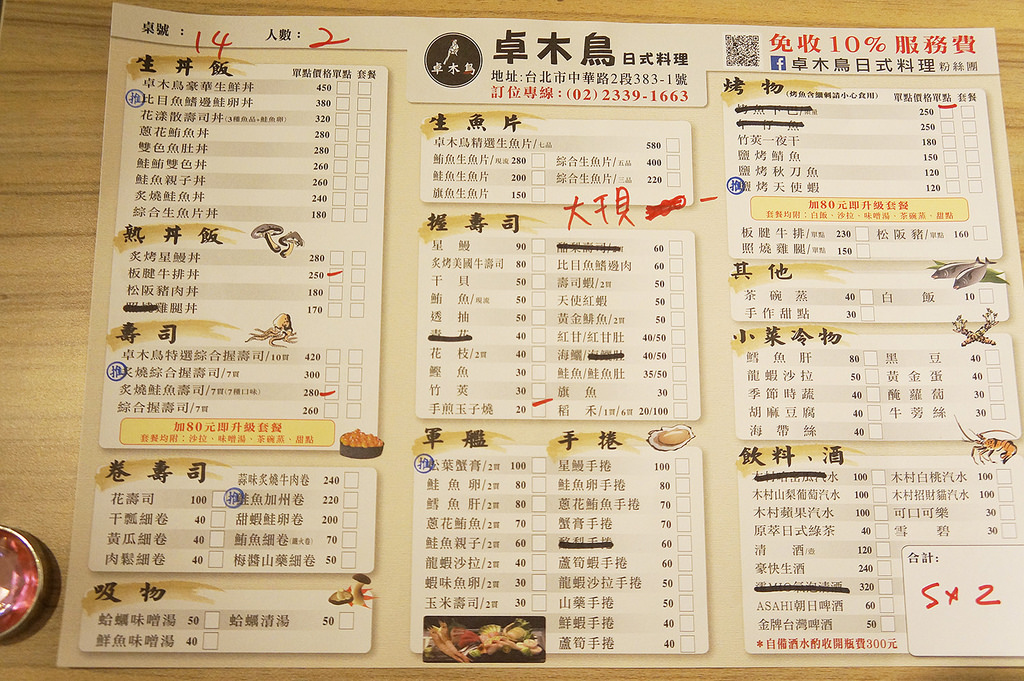 桌號：14 人數：2
卓木鳥
卓木鳥 日式料理
地址:台北市中華路2段383-1號
訂位專線：(02) 2339-1663
免收10%服務費
f 卓木鳥日式料理 粉絲團
生丼飯 單點價格 單點 套餐
卓木鳥豪華生鮮丼 450
推 比目魚鰭邊鮭卵丼 380
花漾散壽司丼(3種魚品+鮭魚卵) 320
蔥花鮪魚丼 280
雙色魚肚丼 280
鮭鮪雙色丼 260
鮭魚親子丼 260
炙燒鮭魚丼 240
綜合生魚片丼 180
熟丼飯
炙烤星鰻丼 280
板腱牛排丼 250
松阪豬肉丼 180
雞腿丼 170
壽司
卓木鳥特選綜合握壽司/10貫 420
推 炙燒綜合握壽司/7貫 300
炙燒鮭魚壽司/7貫(7種口味) 280
綜合壽司/7貫 260
加80元即升級套餐
套餐均附：沙拉、味噌湯、茶碗蒸、甜點
卷壽司
花壽司 100
干瓢細卷 40
黃瓜細卷 40
肉鬆細卷 40
蒜味炙燒牛肉卷 240
推 鮭魚加州卷 220
甜蝦鮭卵卷 200
鮪魚細卷(鐵火卷) 70
梅醬山藥細卷 50
吸物
蛤蠣味噌湯 50 蛤蠣清湯 50
鮮魚味噌湯 40
生魚片
卓木鳥精選生魚片/七品 580
鮪魚生魚片/現流 280 綜合生魚片/五品 400
鮭魚生魚片 200 綜合生魚片/三品 220
旗魚生魚片 150
大干貝 一
握壽司
星鰻 90
炙烤美國牛壽司 80
干貝 50
鮪魚/現流 50
透抽 50
40
花枝/2貫 40
鰹魚 30
竹莢 30
手煎玉子燒 20
60
比目魚鰭邊肉 60
壽司蝦/2貫 50
天使紅蝦 50
黃金鯡魚/2貫 50
紅甘/紅甘肚 40/50
海鱺/ 40/50
鮭魚/鮭魚肚 35/50
旗魚 30
稻禾/1貫/6貫 20/100
軍艦
推 松葉蟹膏/2貫 100
鮭魚卵/2貫 80
鱈魚肝/2貫 80
蔥花鮪魚/2貫 70
鮭魚親子/2貫 60
龍蝦沙拉/2貫 40
蝦味魚卵/2貫 30
玉米壽司/2貫 30
手捲
星鰻手捲 100
鮭魚卵手捲 80
蔥花鮪魚手捲 70
蟹膏手捲 60
60
蘆筍蝦手捲 50
龍蝦沙拉手捲 50
山藥手捲 50
鮮蝦手捲 40
蘆筍手捲 40
烤物 (烤魚含細刺請小心食用) 單點價格 單點 套餐
250
250
竹莢一夜干 180
鹽烤鯖魚 150
鹽烤秋刀魚 120
推 鹽烤天使蝦 120
加80元即升級套餐
套餐均附：白飯、沙拉、味噌湯、茶碗蒸、甜點
板腱牛排/單點 230 松阪豬/單點 160
照燒雞腿/單點 150
其他
茶碗蒸 40 白飯 10
手作甜點 30
小菜冷物
鱈魚肝 80 黑豆 40
龍蝦沙拉 50 黃金蛋 40
季節時蔬 40 醃蘿蔔 30
胡麻豆腐 40 牛蒡絲 30
海帶絲 40
飲料、酒
100 木村白桃汽水 100
木村山梨葡萄汽水 100 木村招財貓汽水 100
木村蘋果汽水 100 可口可樂 30
原萃日式綠茶 40 雪碧 30
清酒/壺 120
豪快生酒 240
320
ASAHI朝日啤酒 60
金牌台灣啤酒 50
＊自備酒水酌收開瓶費300元
合計：
5x2